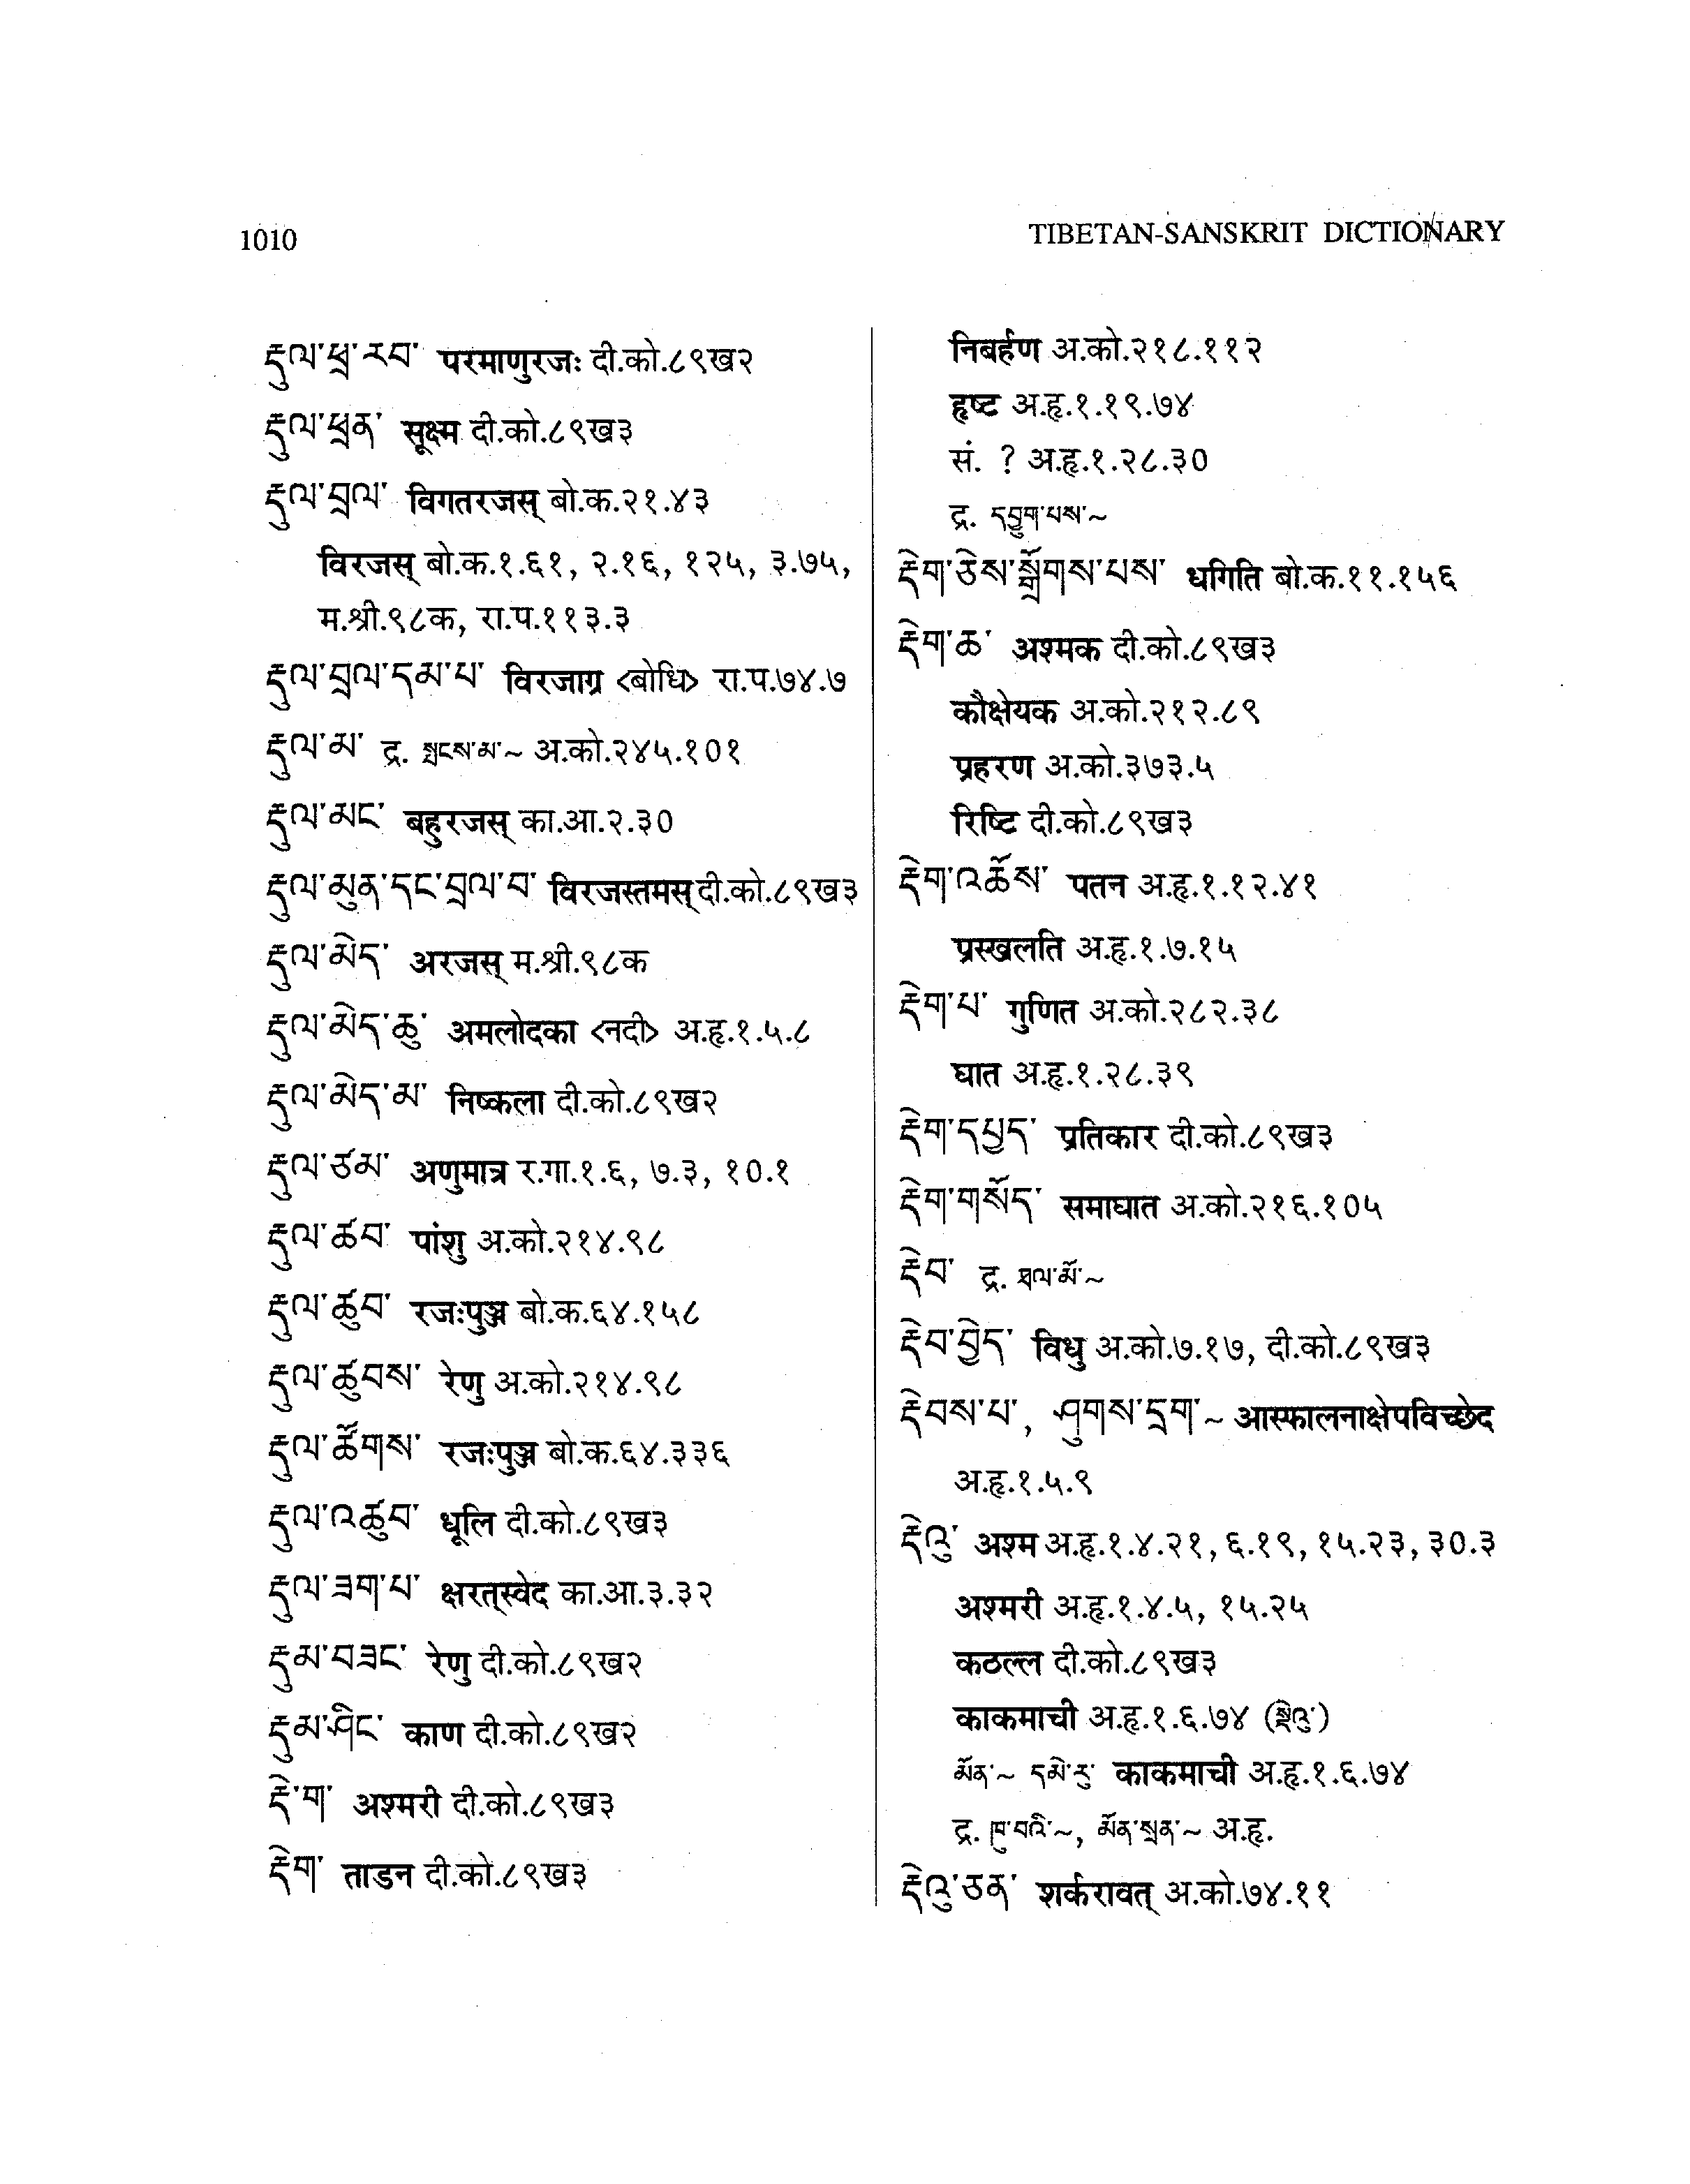 1010
TIBETAN-SANSKRIT DICTIONARY
རྡུལ་ཕྲ་རབ་ परमाणुरजः दी.को.८९ख२
རྡུལ་ཕྲན་ सूक्ष्म दी.को.८९ख३
རྡུལ་བྲལ་ विगतरजस् बो.क.२१.४३
विरजस् बो.क.१.६१, २.१६, १२५, ३.७५,
म.श्री.९८क, रा.प.११३.३
རྡུལ་བྲལ་དམ་པ་ विरजाग्र <बोधि> रा.प.७४.७
རྡུལ་མ་ द्र. སྤངས་མ་~ अ.को.२४५.१०१
རྡུལ་མང་ बहुरजस् का.आ.२.३०
རྡུལ་མུན་དང་བྲལ་བ་ विरजस्तमस् दी.को.८९ख३
རྡུལ་མེད་ अरजस् म.श्री.९८क
རྡུལ་མེད་ཆུ་ अमलोदका <नदी> अ.हृ.१.५.८
རྡུལ་མེད་མ་ निष्कला दी.को.८९ख२
རྡུལ་ཙམ་ अणुमात्र र.गा.१.६, ७.३, १०.१
རྡུལ་ཚབ་ पांशु अ.को.२१४.९८
རྡུལ་ཚུབ་ रजःपुञ्ज बो.क.६४.१५८
རྡུལ་ཚུབས་ रेणु अ.को.२१४.९८
རྡུལ་ཚོགས་ रजःपुञ्ज बो.क.६४.३३६
རྡུལ་འཚུབ་ धूलि दी.को.८९ख३
རྡུལ་ཟག་པ་ क्षरत्स्वेद का.आ.३.३२
རྡུམ་བཟང་ रेणु दी.को.८९ख२
རྡུམ་ཤིང་ काण दी.को.८९ख२
རྡེ་ག་ अश्मरी दी.को.८९ख३
རྡེག་ ताडन दी.को.८९ख३
निबर्हण अ.को.२१८.११२
हृष्ट अ.हृ.१.१९.७४
सं. ? अ.हृ.१.२८.३०
द्र. དབྱུག་པས་~
རྡེག་ཅེས་སྒྲོགས་པས་ धगिति बो.क.११.१५६
རྡེག་ཆ་ अश्मक दी.को.८९ख३
कौक्षेयक अ.को.२१२.८९
प्रहरण अ.को.३७३.५
रिष्टि दी.को.८९ख३
རྡེག་འཆོས་ पतन अ.हृ.१.१२.४१
प्रस्खलति अ.हृ.१.७.१५
རྡེག་པ་ गुणित अ.को.२८२.३८
घात अ.हृ.१.२८.३९
རྡེག་དཔྱད་ प्रतिकार दी.को.८९ख३
རྡེག་གསོད་ समाघात अ.को.२१६.१०५
རྡེབ་ द्र. ཐལ་མོ་~
རྡེབ་བྱེད་ विधु अ.को.७.१७, दी.को.८९ख३
རྡེབས་པ་, ཤུགས་དྲག་~ आस्फालनाक्षेपविच्छेद
अ.हृ.१.५.९
རྡེའུ་ अश्म अ.हृ.१.४.२१, ६.१९, १५.२३, ३०.३
अश्मरी अ.हृ.१.४.५, १५.२५
कठल्ल दी.को.८९ख३
काकमाची अ.हृ.१.६.७४ (སྡེའུ་)
མོན་~ དམེ་རུ་ काकमाची अ.हृ.१.६.७४
द्र. ཁུ་བའི་~, མོན་སྲན་~ अ.हृ.
རྡེའུ་ཅན་ शर्करावत् अ.को.७४.११